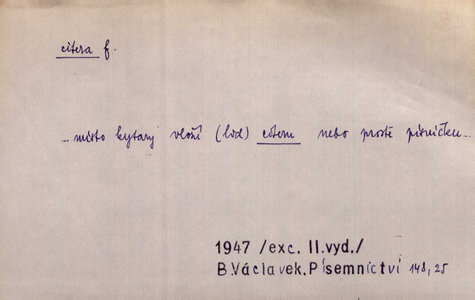 citera f.
...místo kytary vloží (lid) citeru nebo prostě písničku...
1947 /exc. II.vyd./
B.Václavek, Písemnictví 148, 25